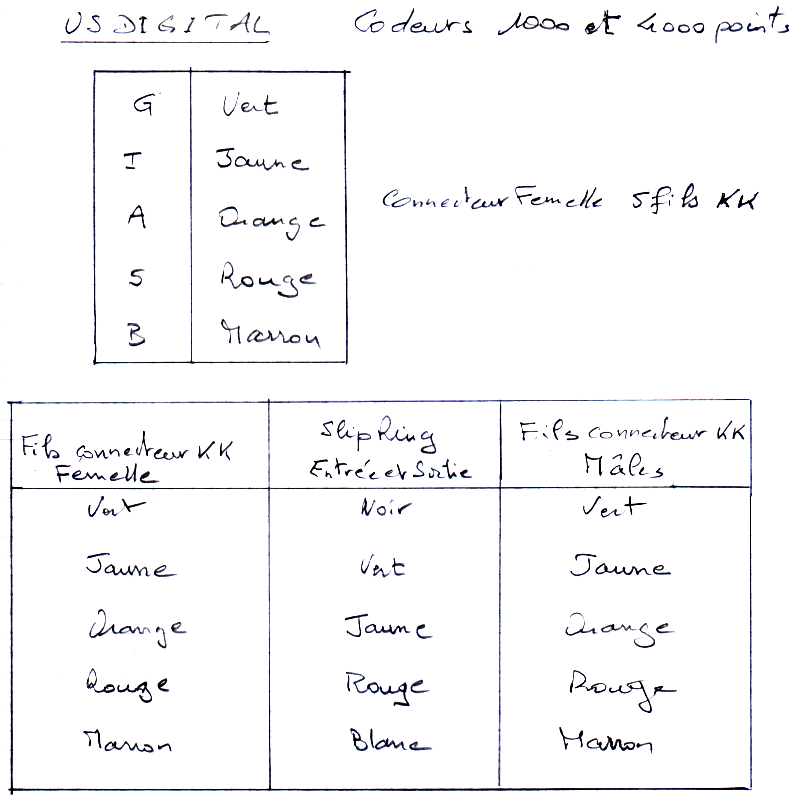 US DIGITAL Codeurs 1000 et 4000 points
G Vert
I Jaune
Connecteur Femelle 5 fils KK
A Orange
5 Rouge
B Marron
Fils connecteur KK Femelle
SlipRing Entrée et Sortie
Fils connecteur KK Mâles
Vert Noir Vert
Jaune Vert Jaune
Orange Jaune Orange
Rouge Rouge Rouge
Marron Blanc Marron